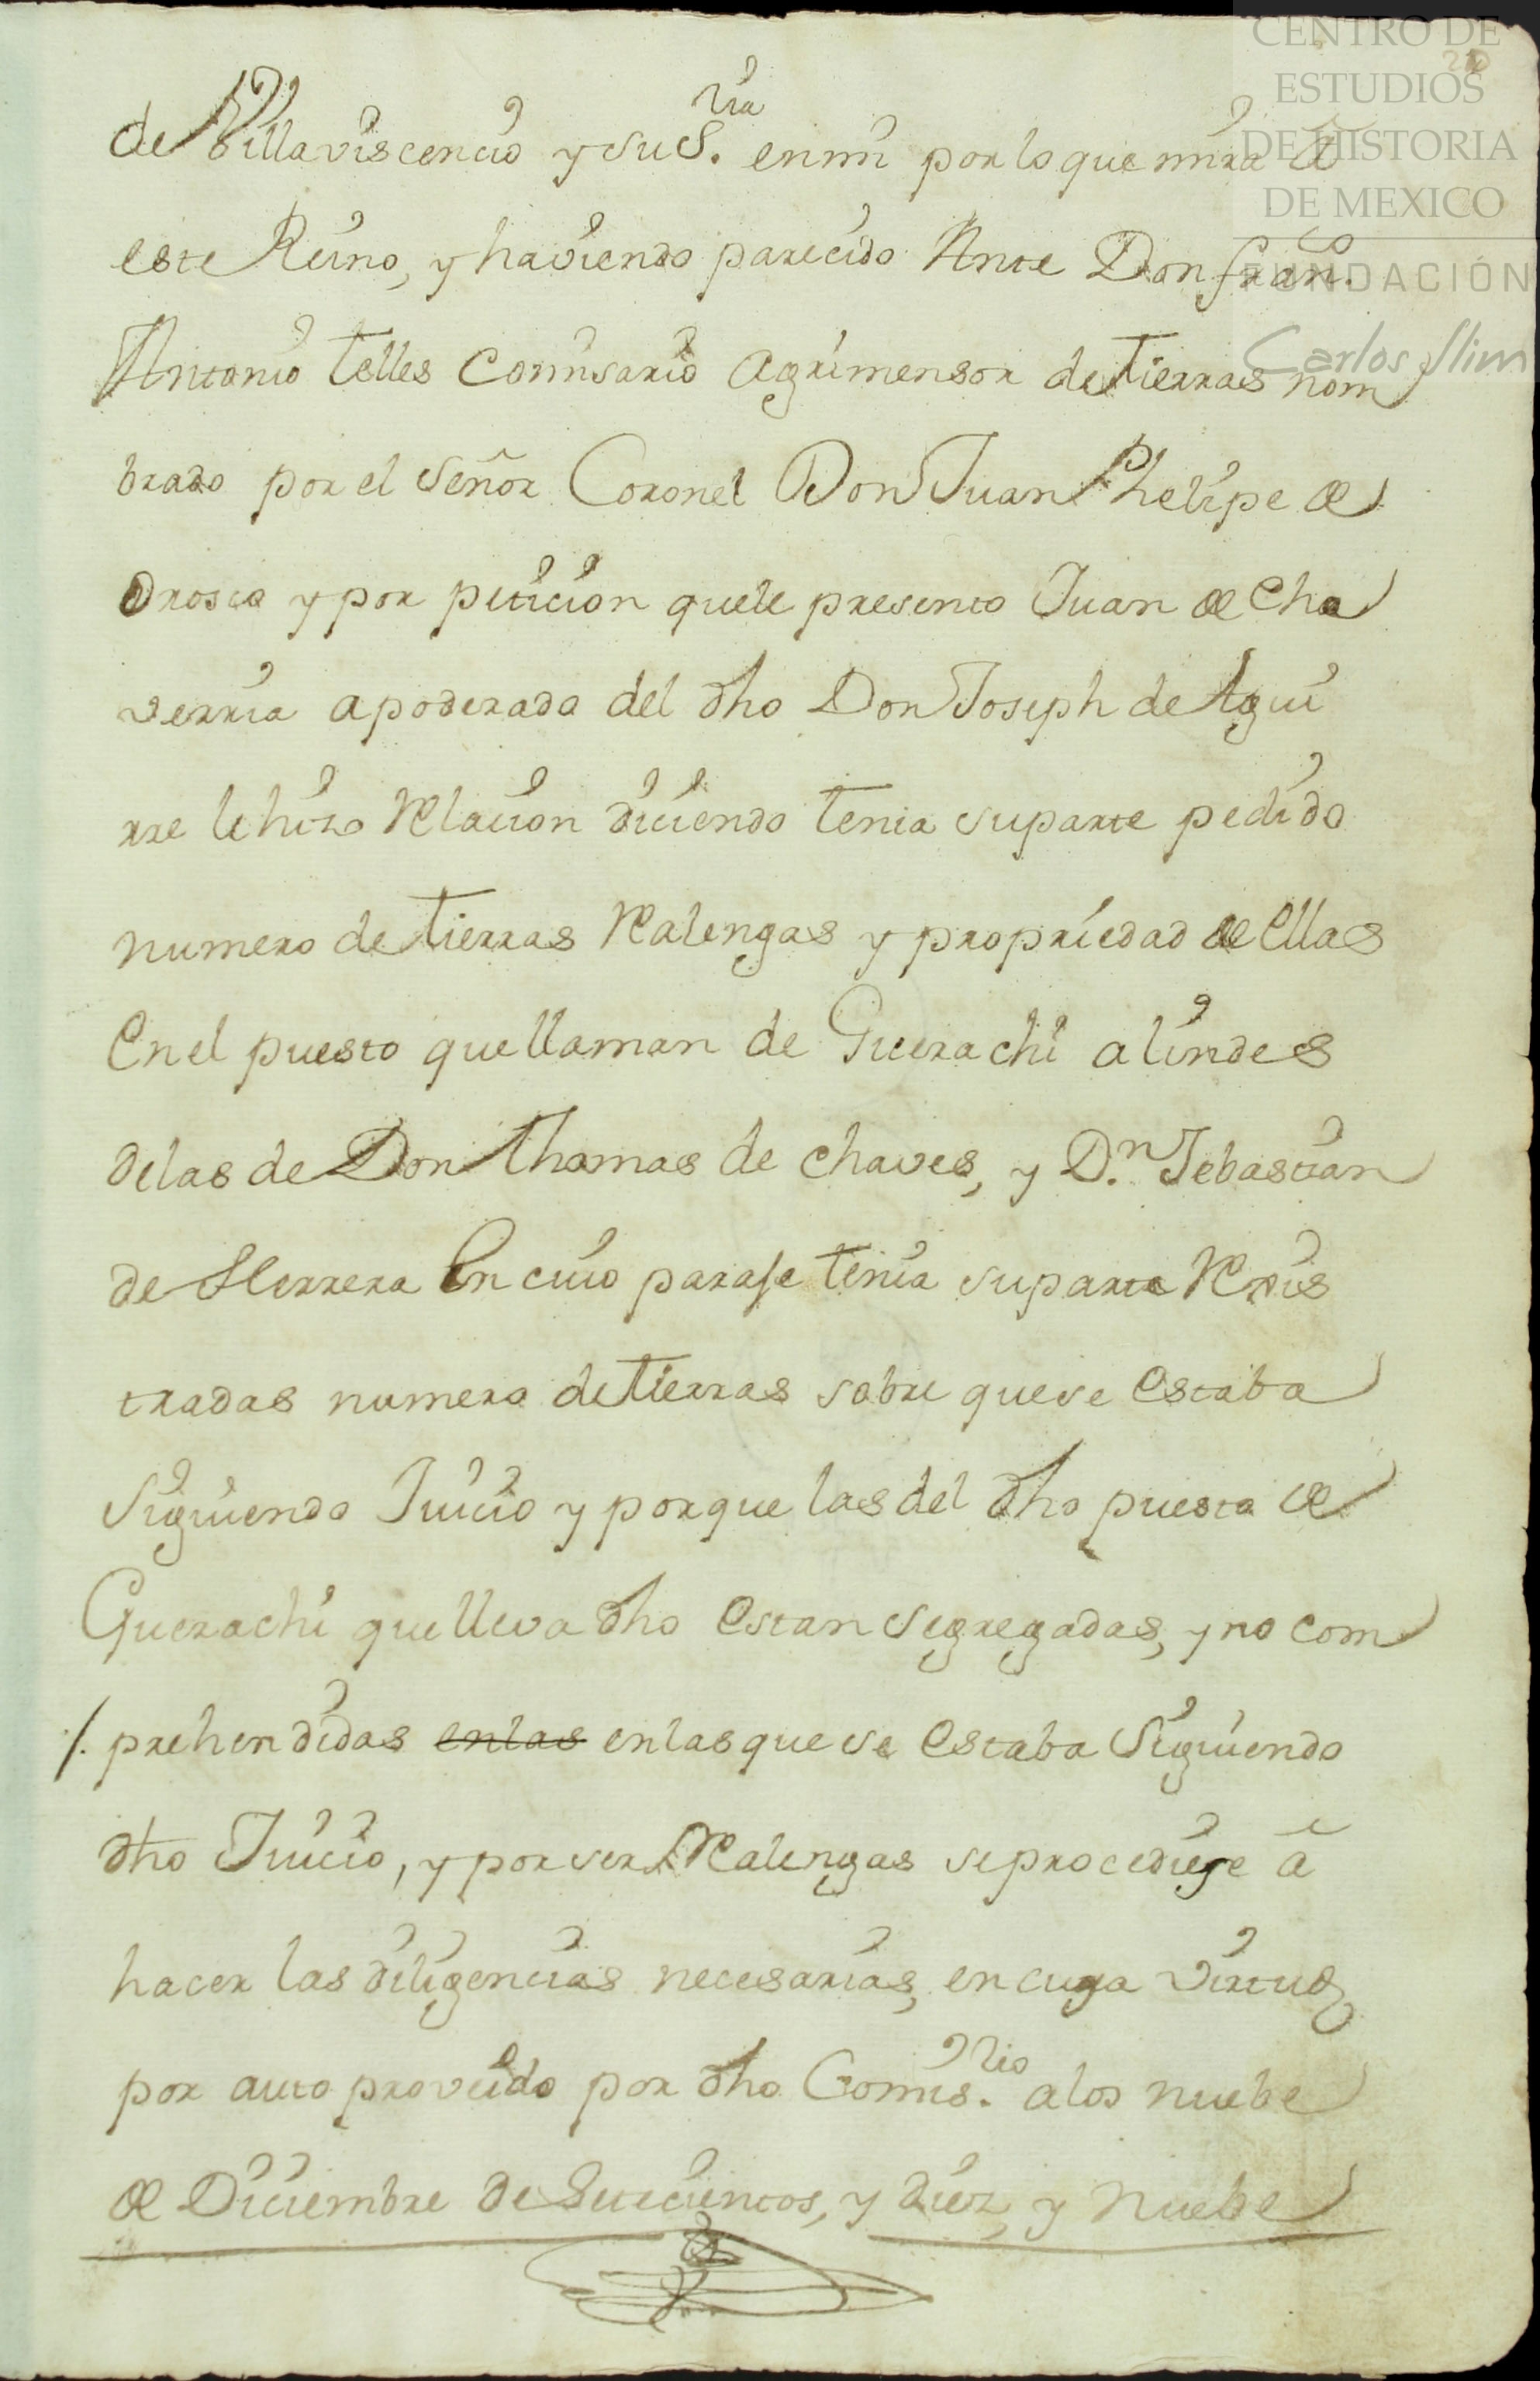 CENTRO DE
ESTUDIOS
DE HISTORIA
DE MEXICO
FUNDACIÓN
Carlos Slim
210
de Villaviscencio y su S.ria en mi por lo que mira â
este Reino, y haviendo parecido Ante Don fran.co
Antonio telles Comisario Agrimensor de tierras nom
brado por el Señor Coronel Don Juan Phelipe de
Orosco y por peticion que le presento Juan de Cha
verria apoderado del dho Don Joseph de Agui
rre le hizo Relacion diciendo tenia su parte pedido
numero de tierras Realengas y propriedad de ellas
En el puesto que llaman de Guerachi a lindes
de las de Don Thomas de Chaves, y D.n Sebastian
de Herrera En cuio paraje tenia su parte Regis
tradas numero de tierras sobre que se estaba
Siguiendo Juicio y porque las del dho puesto de
Guerachi que lleva dho estan segregadas, y no com
/. prehendidas enlas en las que se estaba Siguiendo
dho Juicio, y por ser Realengas se procediese â
hacer las diligencias necesarias, en cuya virtud
por auto proveido por dho Comis.rio a los nuebe
de Diciembre de Setecientos, y diez, y nuebe